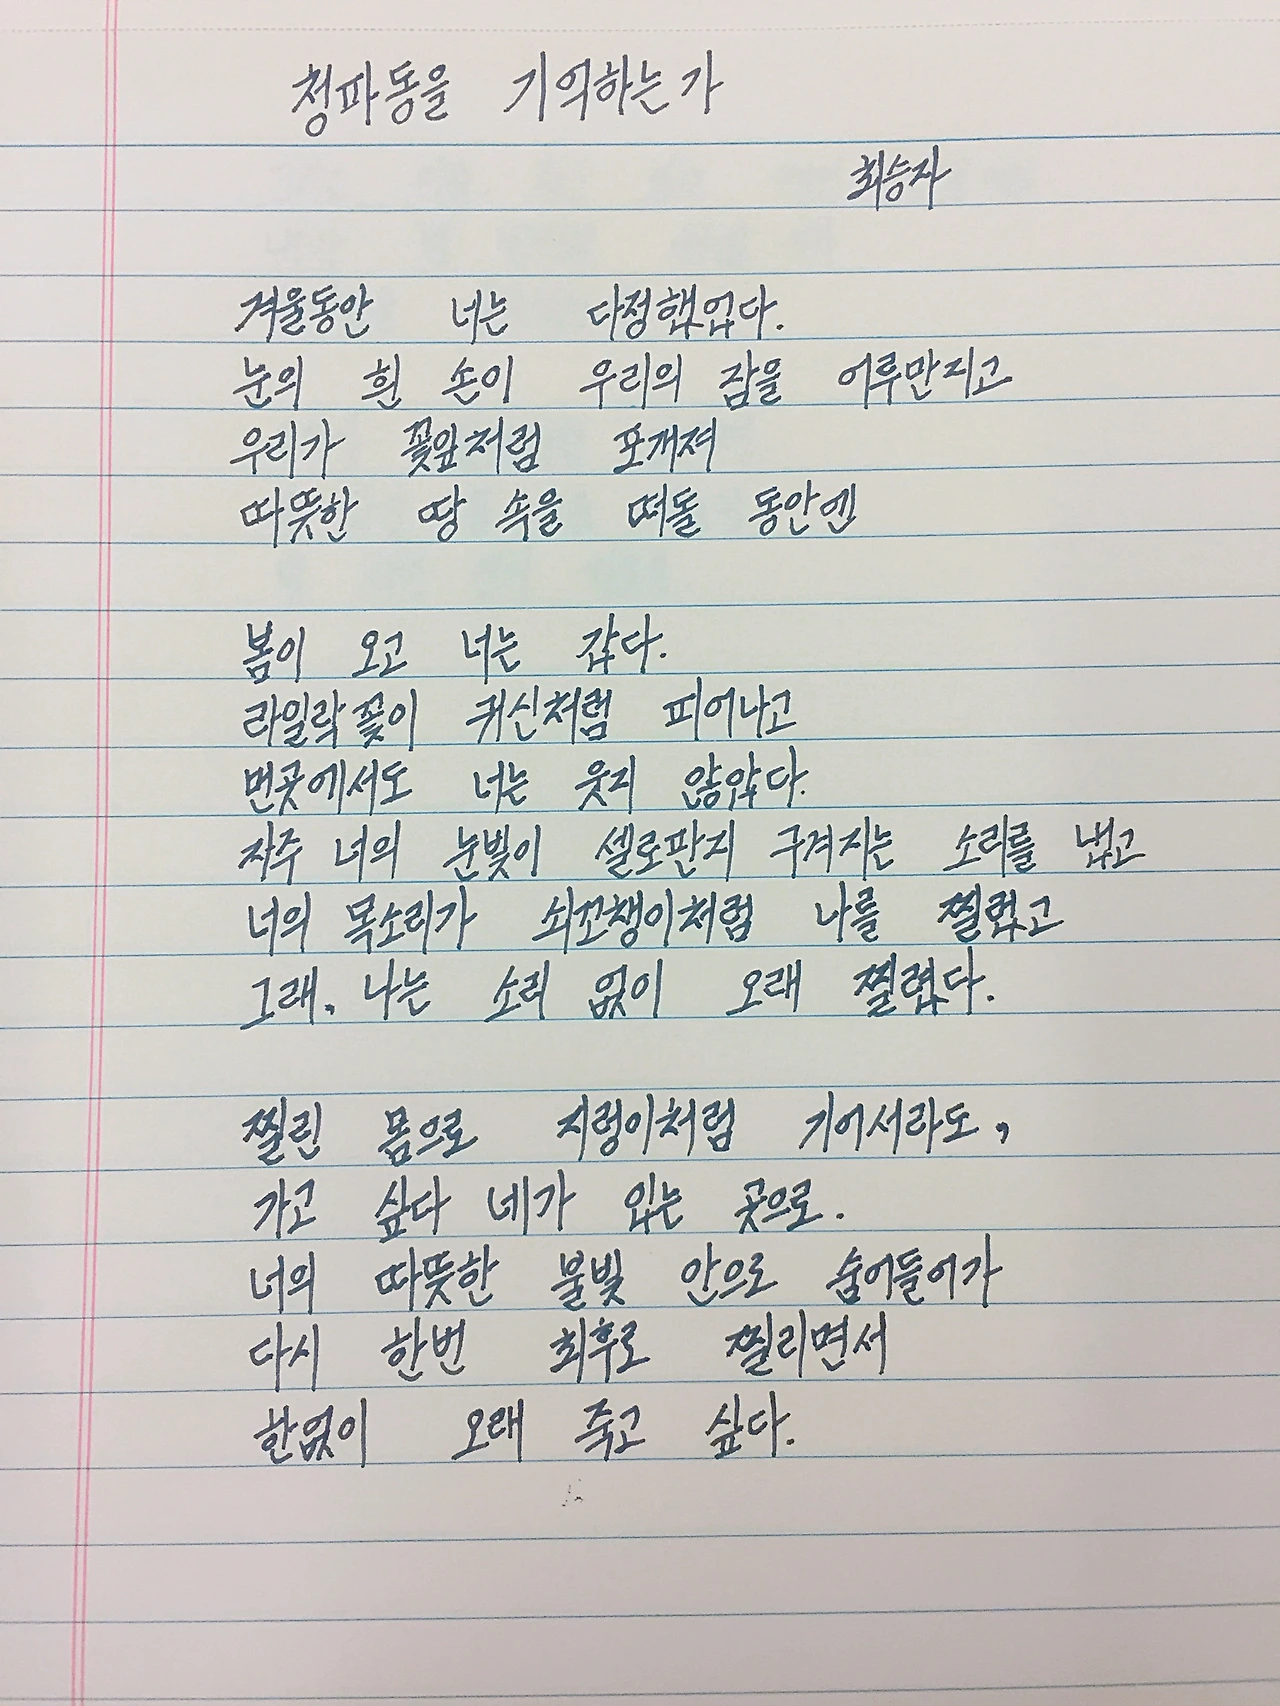 청파동을 기억하는가
최승자
겨울동안 너는 다정했었다.
눈의 흰 손이 우리의 잠을 어루만지고
우리가 꽃잎처럼 포개져
따뜻한 땅 속을 떠돌 동안엔
봄이 오고 너는 갔다.
라일락꽃이 귀신처럼 피어나고
먼곳에서도 너는 웃지 않았다.
자주 너의 눈빛이 셀로판지 구겨지는 소리를 냈고
너의 목소리가 쇠꼬챙이처럼 나를 찔렀고
그래, 나는 소리 없이 오래 찔렸다.
찔린 몸으로 지렁이처럼 기어서라도,
가고 싶다 네가 있는 곳으로.
너의 따뜻한 불빛 안으로 숨어들어가
다시 한번 최후로 찔리면서
한없이 오래 죽고 싶다.